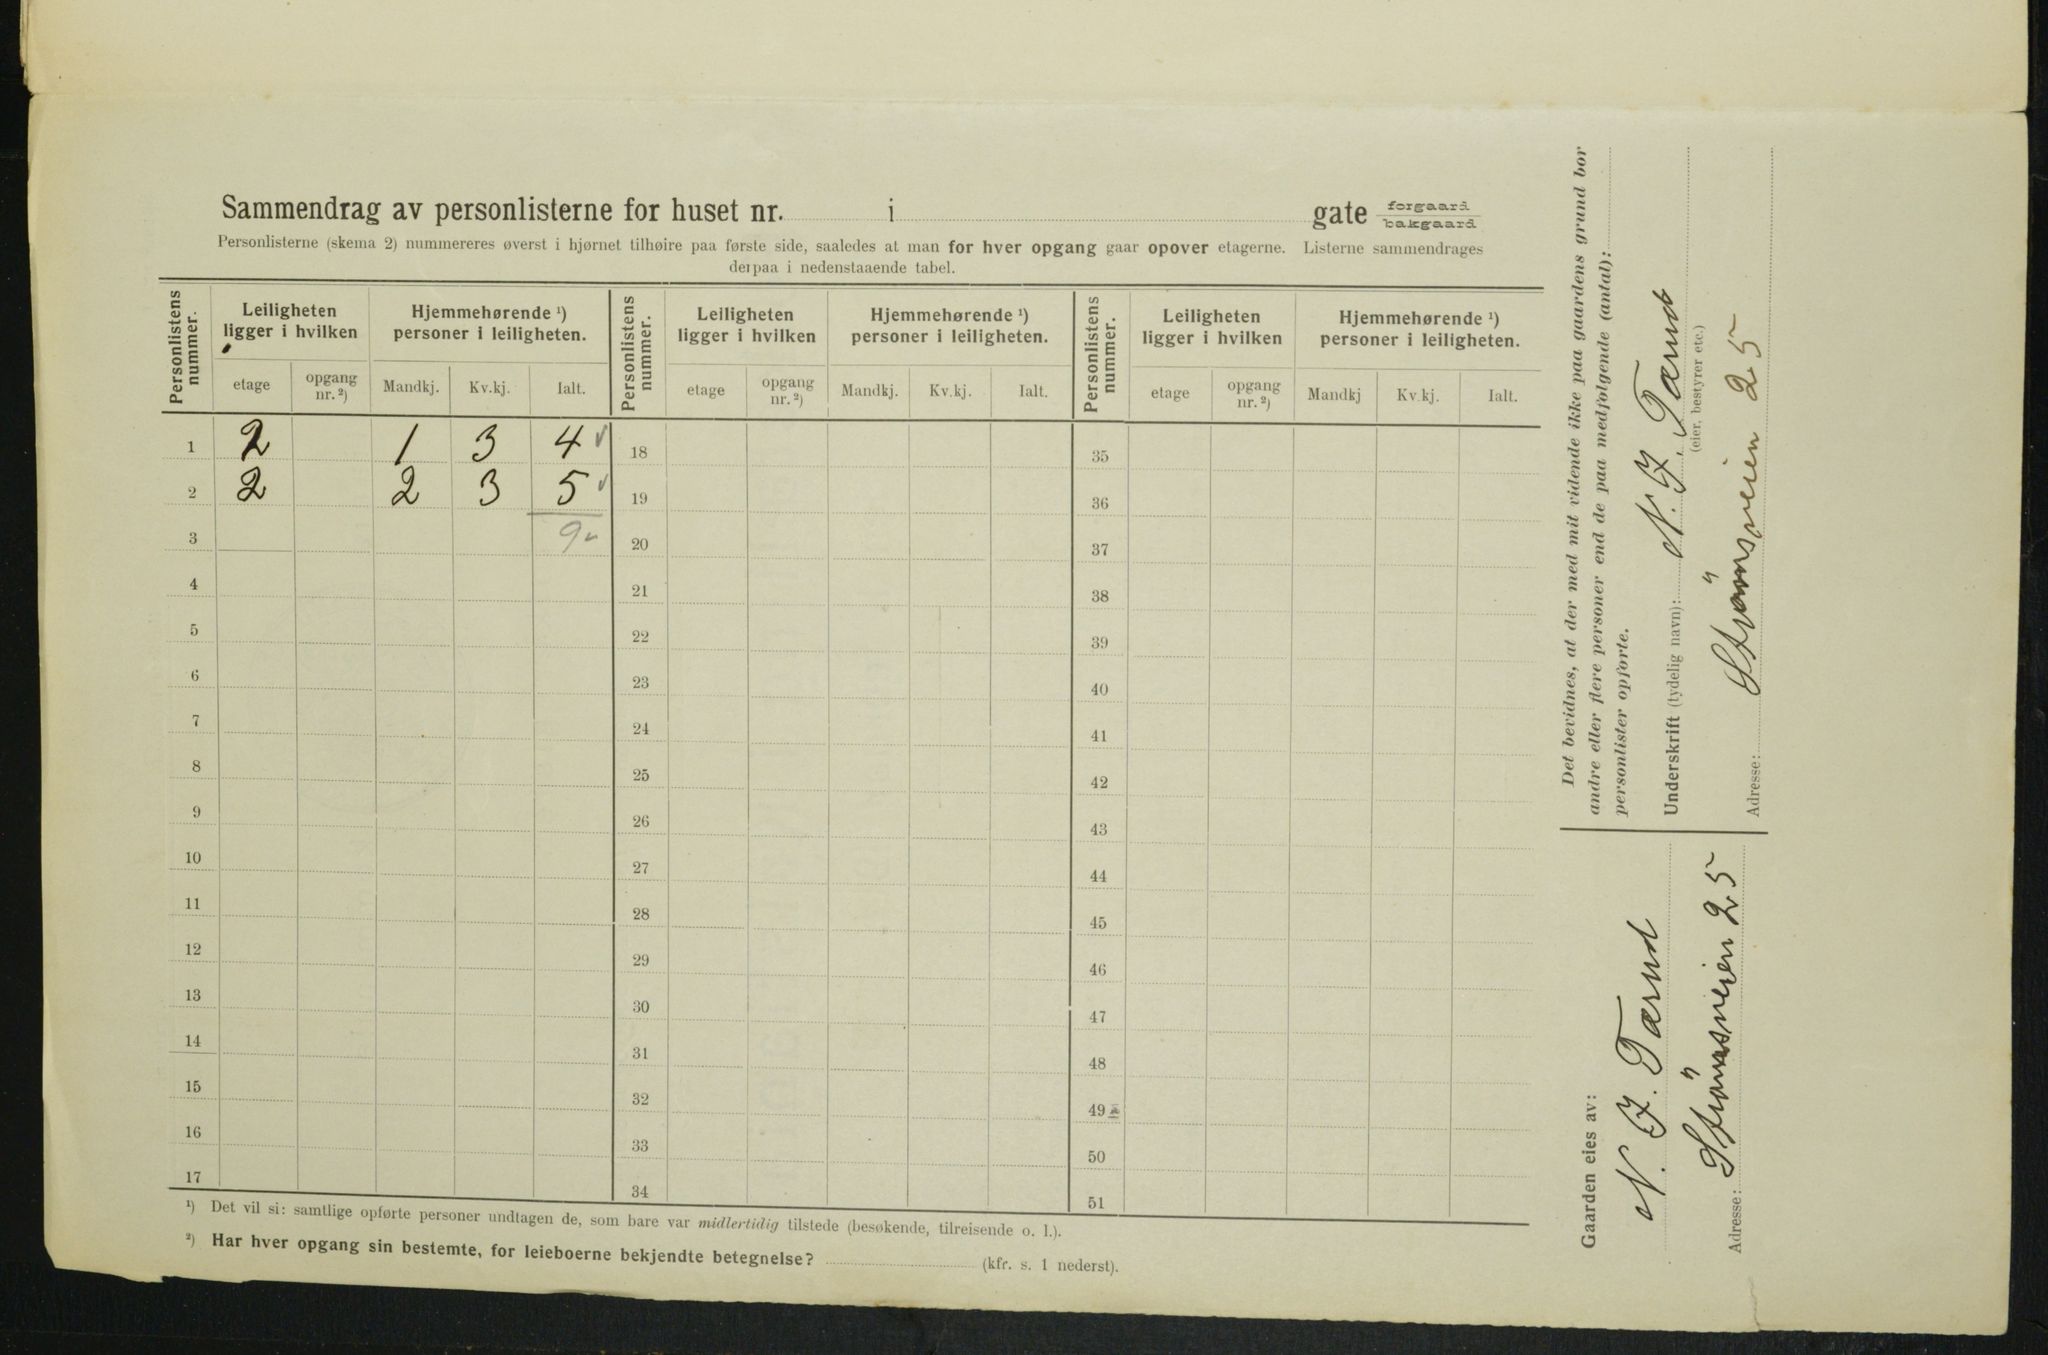 Sammendrag av personlisterne for huset nr. i gate forgaard bakgaard
Personlisterne (skema 2) nummereres øverst i hjørnet tilhøire paa første side, saaledes at man for hver opgang gaar opover etagerne. Listerne sammendrages
derpaa i nedenstaaende tabel.
Personlistens nummer. Leiligheten ligger i hvilken Hjemmehørende ¹) personer i leiligheten. Personlistens nummer. Leiligheten ligger i hvilken Hjemmehørende ¹) personer i leiligheten. Personlistens nummer. Leiligheten ligger i hvilken Hjemmehørende ¹) personer i leiligheten.
etage opgang nr. ²) Mandkj. Kv.kj. Ialt. etage opgang nr. ²) Mandkj. Kv.kj. Ialt. etage opgang nr. ²) Mandkj Kv.kj. Ialt.
1 2 1 3 4 18 35
2 2 2 3 5 19 36
3 9 20 37
4 21 38
5 22 39
6 23 40
7 24 41
8 25 42
9 26 43
10 27 44
11 28 45
12 29 46
13 30 47
14 31 48
15 32 49
16 33 50
17 34 51
¹) Det vil si: samtlige opførte personer undtagen de, som bare var midlertidig tilstede (besøkende, tilreisende o. l.).
²) Har hver opgang sin bestemte, for leieboerne bekjendte betegnelse? (kfr. s. 1 nederst).
Det bevidnes, at der med mit vidende ikke paa gaardens grund bor
andre eller flere personer end de paa medfolgende (antal):
personlister opførte.
Underskrift (tydelig navn): N. J. Tærud
(eier, bestyrer etc.)
Adresse: 25
Gaarden eies av:
N. J. Tærud
Adresse: 25